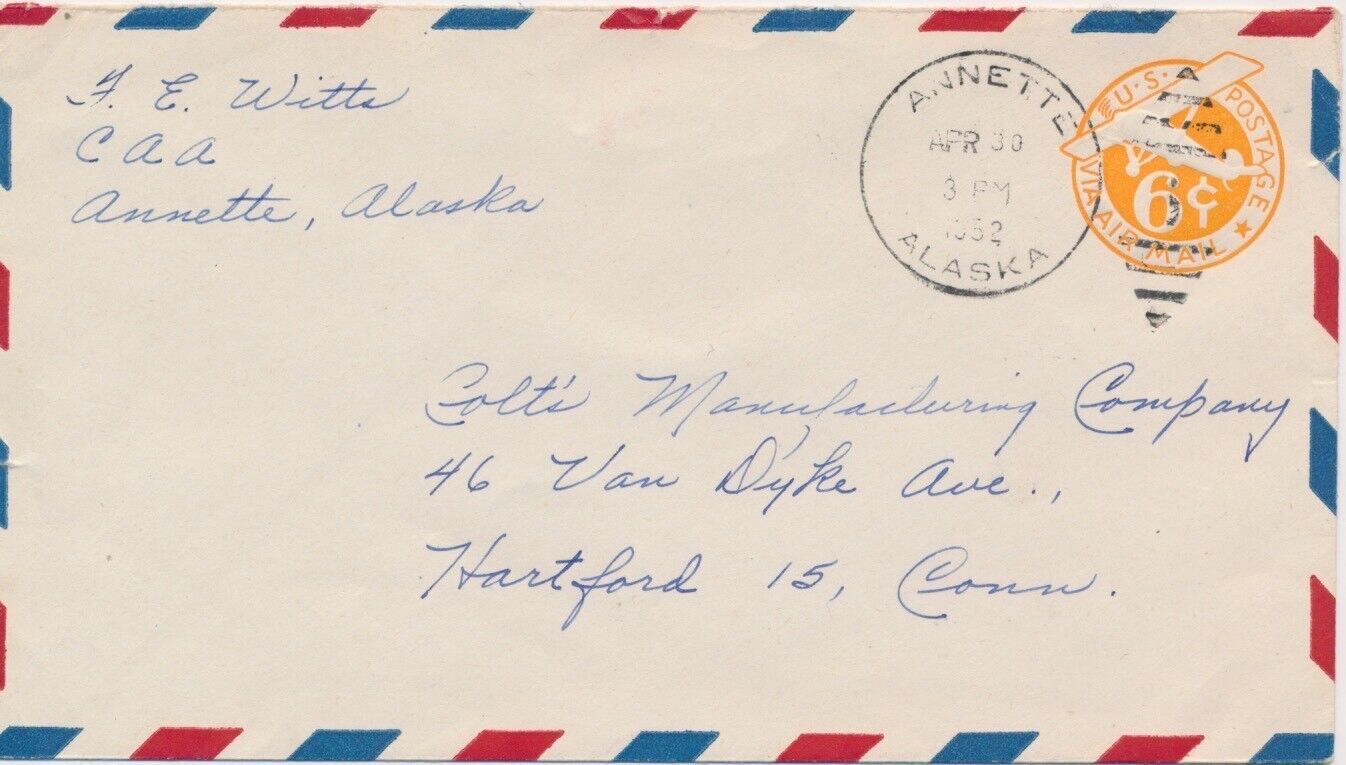 F. E. Witts
CAA
Annette, Alaska
ANNETTE
APR 30
3 PM
1952
ALASKA
U.S. POSTAGE
6¢
VIA AIR MAIL
Colt's Manufacturing Company
46 Van Dyke Ave.,
Hartford 15, Conn.